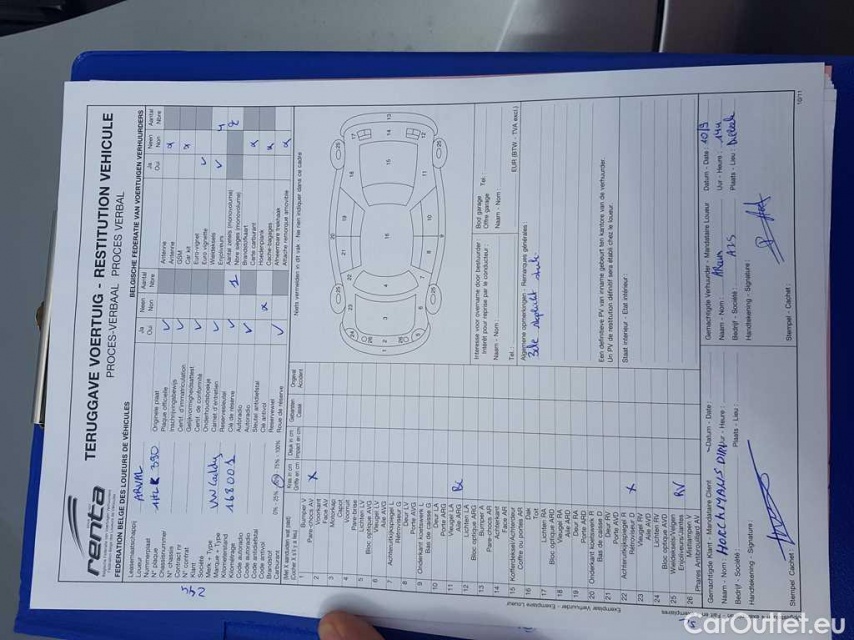 renta
FEDERATION BELGE DES LOUEURS DE VÉHICULES
TERUGGAVE VOERTUIG - RESTITUTION VEHICULE
PROCES-VERBAAL PROCES VERBAL
BELGISCHE FEDERATIE VAN VOERTUIGEN VERHUURDERS
Leasemaatschappij
Loueur : ARVAL
Nummerplaat
N° plaque :
Chassisnummer
N° chassis :
Contract nr
N° contrat
Klant
Société :
Merk - Type
Marque - Type : VW Caddy
Kilometerstand
Kilométrage : 168001
Code autoradio
Code autoradio
Code antidiefstal
Code antivol
Brandstof
Carburant : 0% - 25% 75% - 100%
Ja Neen Aantal
Oui Non Nbre
Originele plaat
Plaque officielle
Inschrijvingsbewijs
Certif. d'immatriculation
Gelijkvormigheidsattest
Certif. de conformité
Onderhoudsboekje
Carnet d'entretien
Reservesleutel
Clé de réserve 1
Autoradio
Autoradio
Sleutel antidiefstal
Clé antivol
Reservewiel
Roue de réserve
Ja Neen Aantal
Oui Non Nbre
Antenne
Antenne
GSM
Car kit
Euro-vignet
Euro vignette
Wieldeksels
Enjoliveurs 4
Aantal zetels (monovolume)
Nbre sièges (monovolume) 2
Brandstofkaart
Carte carburant
Hoedenplank
Cache-bagages
Afneembare trekhaak
Attache remorque amovible
Kras in cm
Griffe en cm
Deuk in cm
Impact en cm
Gebroken
Cassé
Origineel
Accident
1 Bumper V
Pare-chocs AV
2 Voorkant
Face AV
3 Motorkap
Capot
4 Voorruit
Pare-brise
5 Lichten LV
Bloc optique AVG
6 Vleugel LV
Aile AVG
7 Achteruitkijkspiegel L
Rétroviseur G
8 Deur LV
Porte AVG
9 Onderkant koetswerk L
Bas de caisse G
10 Deur LA
Porte ARG
11 Vleugel LA
Aile ARG
12 Lichten LA
Bloc optique ARG
13 Bumper A
Pare-chocs AR
14 Achterkant
Face AR
15 Kofferdeksel/Achterdeur
Coffre ou portes AR
16 Dak
Toit
17 Lichten RA
Bloc optique ARD
18 Vleugel RA
Aile ARD
19 Deur RA
Porte ARD
20 Onderkant koetswerk R
Bas de caisse D
21 Deur RV
Porte AVD
22 Achteruitkijkspiegel R
Rétroviseur D
23 Vleugel RV
Aile AVD
24 Lichten RV
Bloc optique AVD
25 Wieldeksels/Velgen
Enjoliveurs/Jantes RV
26 Mistlampen V
Phares Antibrouillard AV
Niets vermelden in dit vak - Ne rien indiquer dans ce cadre
Interesse voor overname door bestuurder :
Intérêt pour reprise par le conducteur :
Naam - Nom :
Tel. :
Bod garage
Offre garage :
Naam - Nom :
Tel.
EUR (BTW - TVA excl.)
Algemene opmerkingen - Remarques générales :
Een definitieve PV van inname gebeurt ten kantore van de verhuurder.
Un PV de restitution définitif sera établi chez le loueur.
Staat interieur - Etat intérieur :
Gemachtigde Klant - Mandataire Client
Datum - Date :
Naam - Nom :
Uur - Heure :
Bedrijf - Société :
Plaats - Lieu :
Handtekening - Signature :
Stempel - Cachet :
Gemachtigde Verhuurder - Mandataire Loueur
Datum - Date : 10/9
Naam - Nom :
Uur - Heure : 14u
Bedrijf - Société :
Plaats - Lieu :
Handtekening - Signature :
Stempel - Cachet :
Exemplaar Verhuurder - Exemplaire Loueur
10/11
CarOutlet.eu